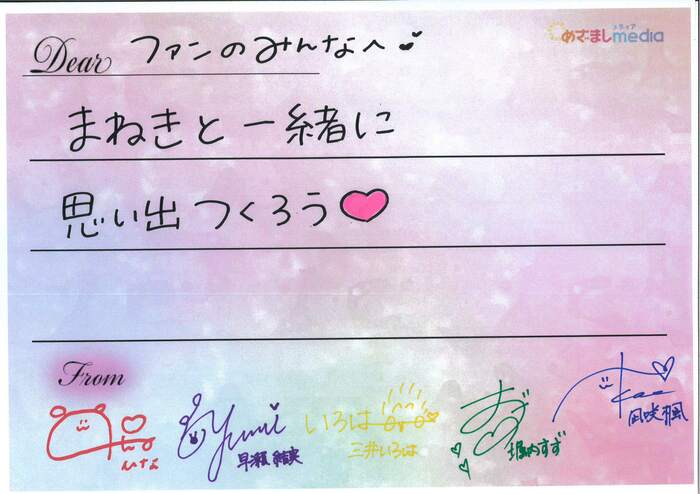 Dear ファンのみんなへ
めざましmedia
メディア
まねきと一緒に
思い出つくろう
From
ひなの
Yumi
早瀬結実
いろは
三井いろは
すず
堀内すず
凪咲楓